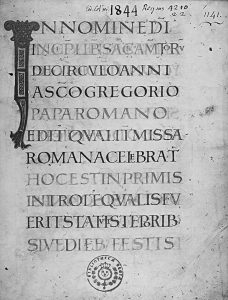 1844
1141.
IN NOMINE DNI
INCP LIB SACAMTORV
DE CIRCVLO ANNI
A SCO GREGORIO
PAPA ROMANO
EDIT QUALIT MISSA
ROMANA CELEBRAT
HOC EST IN PRIMIS
INTROIT QVALIS FV
ERIT STATVTIS TEPRIB
SIVE DIEB FESTIS